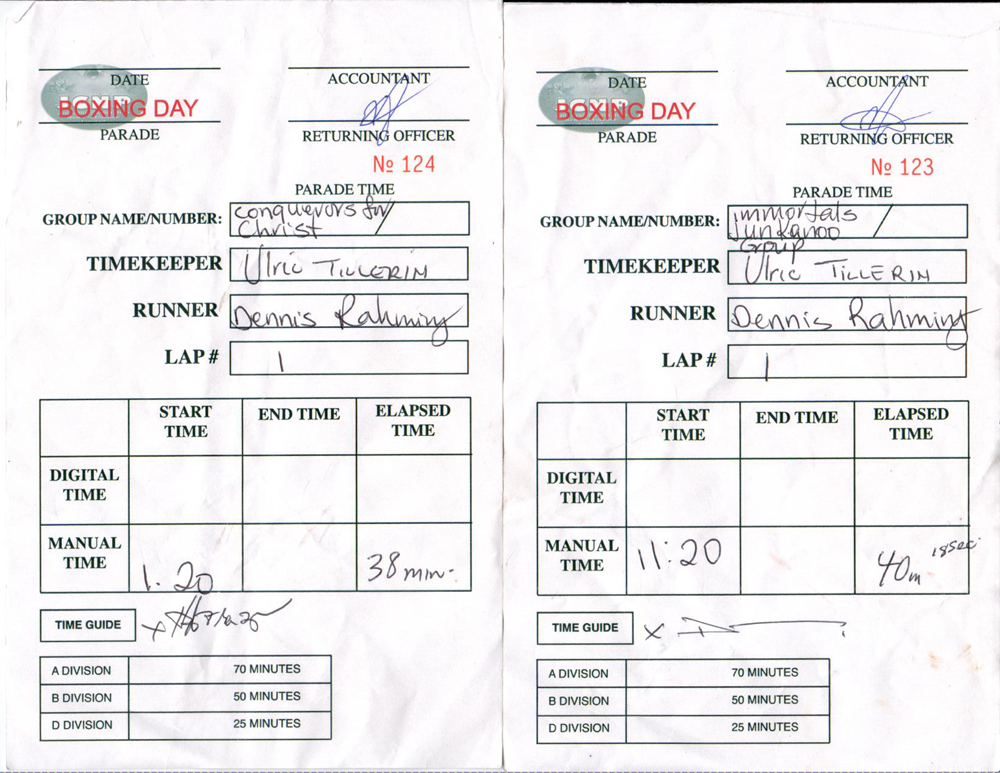 DATE
BOXING DAY
PARADE
ACCOUNTANT
RETURNING OFFICER
№ 124
PARADE TIME
GROUP NAME/NUMBER: conquerors for /
Christ
TIMEKEEPER Ulric TILLERIN
RUNNER Dennis Rahming
LAP # 1
START TIME END TIME ELAPSED TIME
DIGITAL TIME
MANUAL TIME 1:20 38 min.
TIME GUIDE x
A DIVISION 70 MINUTES
B DIVISION 50 MINUTES
D DIVISION 25 MINUTES
DATE
BOXING DAY
PARADE
ACCOUNTANT
RETURNING OFFICER
№ 123
PARADE TIME
GROUP NAME/NUMBER: immortals /
Junkanoo
Group
TIMEKEEPER Ulric TILLERIN
RUNNER Dennis Rahming
LAP # 1
START TIME END TIME ELAPSED TIME
DIGITAL TIME
MANUAL TIME 11:20 40m 18sec.
TIME GUIDE x
A DIVISION 70 MINUTES
B DIVISION 50 MINUTES
D DIVISION 25 MINUTES